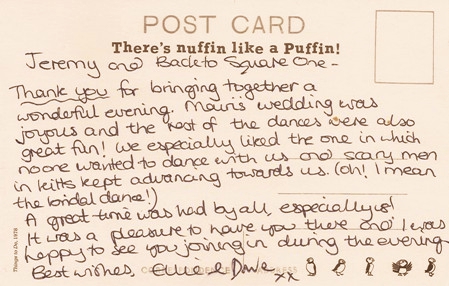 POST CARD
There's nuffin like a Puffin!
Jeremy and Back to Square One -
Thank you for bringing together a
wonderful evening. Mairi's wedding was
joyous and the rest of the dances were also
great fun! We especially liked the one in which
no one wanted to dance with us and scary men
in kilts kept advancing towards us. (Oh! I mean
the bridal dance!)
A great time was had by all, especially us!
It was a pleasure to have you there and I was
happy to see you joining in during the evening.
Best wishes, xx
Things to Do, 1978